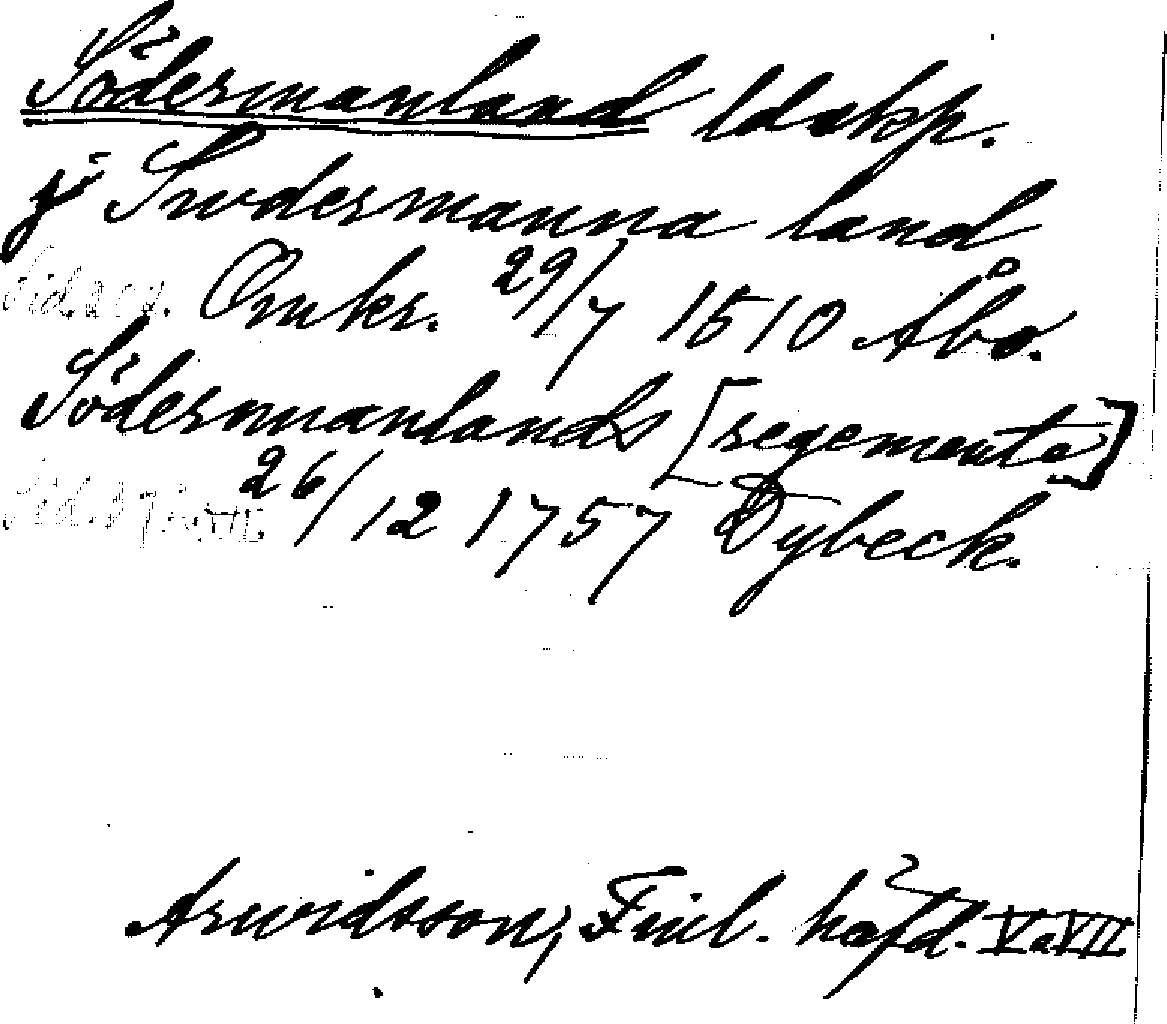 Södermanland ldskp.
j Swdermanna land
Omkr. 29/7 1510 Åbo.
Södermanlands [regemente]
26/12 1757 Dybeck.
Arwidsson, Finl. häfd. V a VII